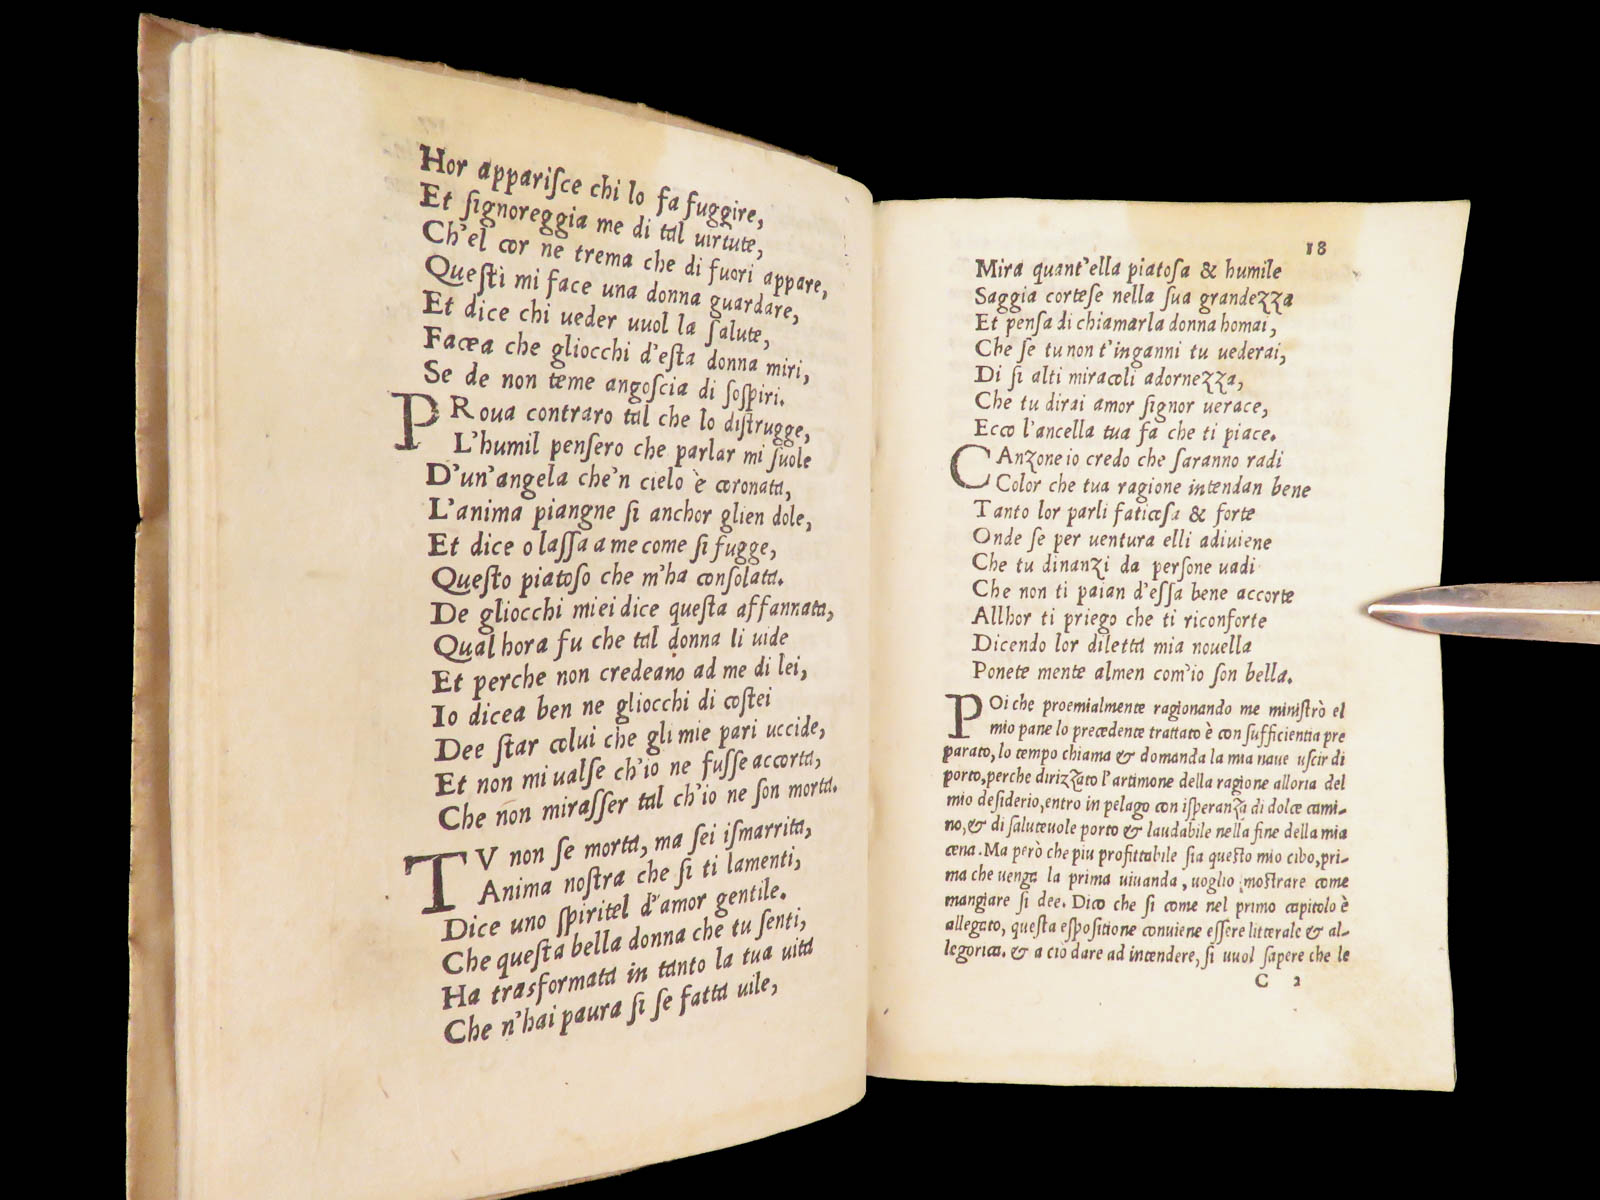 Hor appariſce chi lo fa fuggire,
Et ſignoreggia me di tal uirtute,
Ch'el cor ne trema che di fuori appare,
Queſti mi face una donna guardare,
Et dice chi ueder uuol la ſalute,
Facea che gliocchi d'eſta donna miri,
Se de non teme angoſcia di ſoſpiri.
PRoua contraro tal che lo diſtrugge,
L'humil penſero che parlar mi ſuole
D'un'angela che'n cielo è coronata,
L'anima piangne ſi anchor glien dole,
Et dice o laſſa a me come ſi fugge,
Queſto piatoſo che m'ha conſolata.
De gliocchi miei dice queſta affannata,
Qual hora fu che tal donna li uide
Et perche non credeano ad me di lei,
Io dicea ben ne gliocchi di coſtei
Dee ſtar colui che gli mie pari uccide,
Et non mi ualſe ch'io ne fuſſe accorta,
Che non miraſſer tal ch'io ne ſon morta.
TV non ſe morta, ma ſei iſmarrita,
Anima noſtra che ſi ti lamenti,
Dice uno ſpiritel d'amor gentile.
Che queſta bella donna che tu ſenti,
Ha trasformata in tanto la tua uita
Che n'hai paura ſi ſe fatta uile,
18
Mira quant'ella piatoſa & humile
Saggia corteſe nella ſua grandezza
Et penſa di chiamarla donna homai,
Che ſe tu non t'inganni tu uederai,
Di ſi alti miracoli adornezza,
Che tu dirai amor ſignor uerace,
Ecco l'ancella tua fa che ti piace.
CAnzone io credo che ſaranno radi
Color che tua ragione intendan bene
Tanto lor parli faticoſa & forte
Onde ſe per uentura elli adiuiene
Che tu dinanzi da perſone uadi
Che non ti paian d'eſſa bene accorte
Allhor ti priego che ti riconforte
Dicendo lor diletta mia nouella
Ponete mente almen com'io ſon bella.
POi che proemialmente ragionando me miniſtrò el
mio pane lo precedente trattato è con ſufficientia pre
parato, lo tempo chiama & domanda la mia naue uſcir di
porto, perche dirizzato l'artimone della ragione alloria del
mio deſiderio, entro in pelago con iſperanza di dolce cami-
no, & di ſaluteuole porto & laudabile nella fine della mia
cena. Ma però che piu profittabile ſia queſto mio cibo, pri-
ma che uenga la prima uiuanda, uoglio moſtrare come
mangiare ſi dee. Dico che ſi come nel primo capitolo è
allegato, queſta eſpoſitione conuiene eſſere litterale & al-
legorica. & a ciò dare ad intendere, ſi uuol ſapere che le
C 2